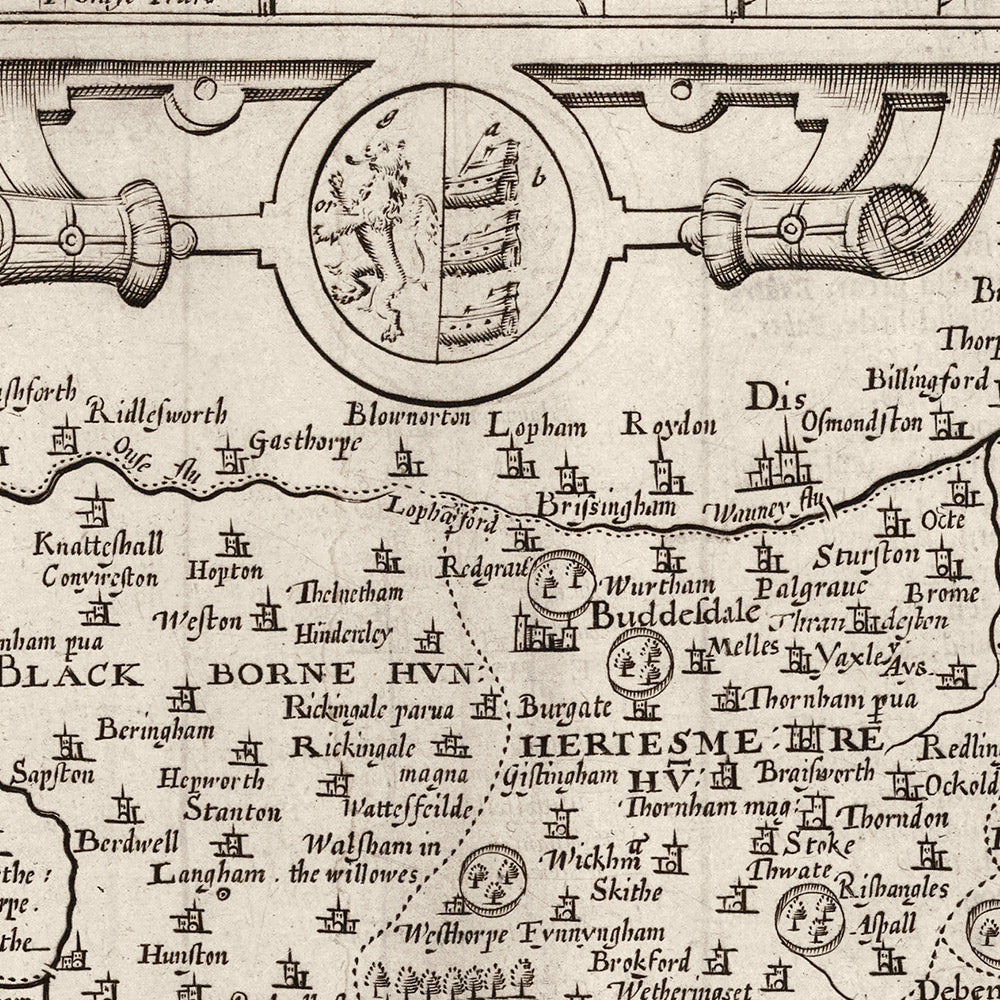 g
a
b
or
Thorp
Billingford
Dis
Osmondſton
Ridleſworth
Blownorton
Lopham
Roydon
Gasthorpe
Ouse flu
Lophāford
Briſsingham
Wauney flu
Octe
Knatteſhall
Hopton
Sturſton
Convireſton
Redgraue
Wurtham
Palgraue
Brome
Thelnetham
Buddeſdale
Weſton
Hinderclcy
Thrandeſton
nham pua
Melles
Yaxley
Avs.
BLACK BORNE HVN:
Rickingale parua
Burgate
Thornham pua
Beringham
Rickingale
magna
HERTESME:RE
HV̄:
Redlin
Sapſton
Hepworth
Giſtingham
Braiſworth
Ockold
Stanton
Watteſfeilde
Thornham mag:
Thorndon
Berdwell
Walſham in
the willowes
Wickhm̄
Skithe
Stoke
Langham
Thwate
Riſhangles
Aſhall
the:
rpe.
the
Weſthorpe
Fynnyngham
Hunſton
Brokford
Wetheringſet
Deben